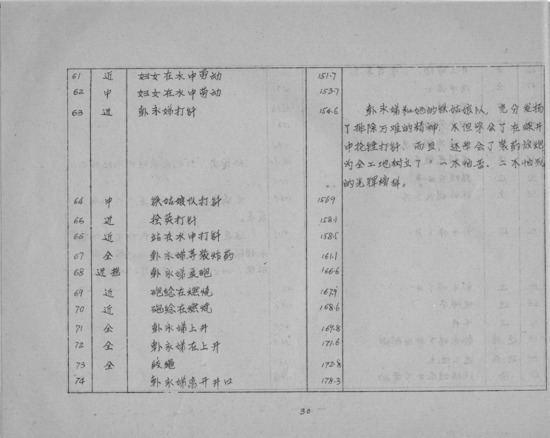 61 近 妇女在水中劳动 151.7
62 中 妇女在水中劳动 153.7
63 近 郭永娣打针 154.6 郭永娣和她的铁姑娘队，充分发扬
了排除万难的精神，不但学会了在竖井
中抡锤打针，而且，还学会了装药放炮
为全工地树立了"一不怕苦，二不怕死"
的光辉榜样。
64 中 铁姑娘队打针 156.9
65 近 打针 158.1
66 近 站在水中打针 158.5
67 全 郭永娣等装炸药 161.1
68 近 郭永娣点炮 166.6
69 近 炮捻在燃烧 167.9
70 近 炮捻在燃烧 168.6
71 全 郭永娣上井 169.8
72 全 郭永娣在上井 171.6
73 全 绳 172.8
74 郭永娣离开井口 178.3
30